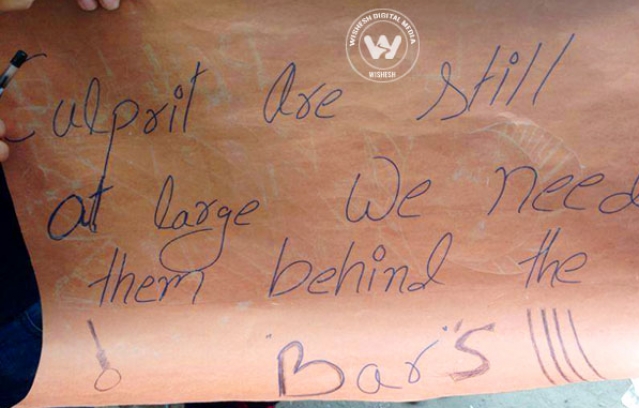 WISHESH DIGITAL MEDIA
W
WISHESH
Culprit are still
at large We need
them behind the
! "Bar"s